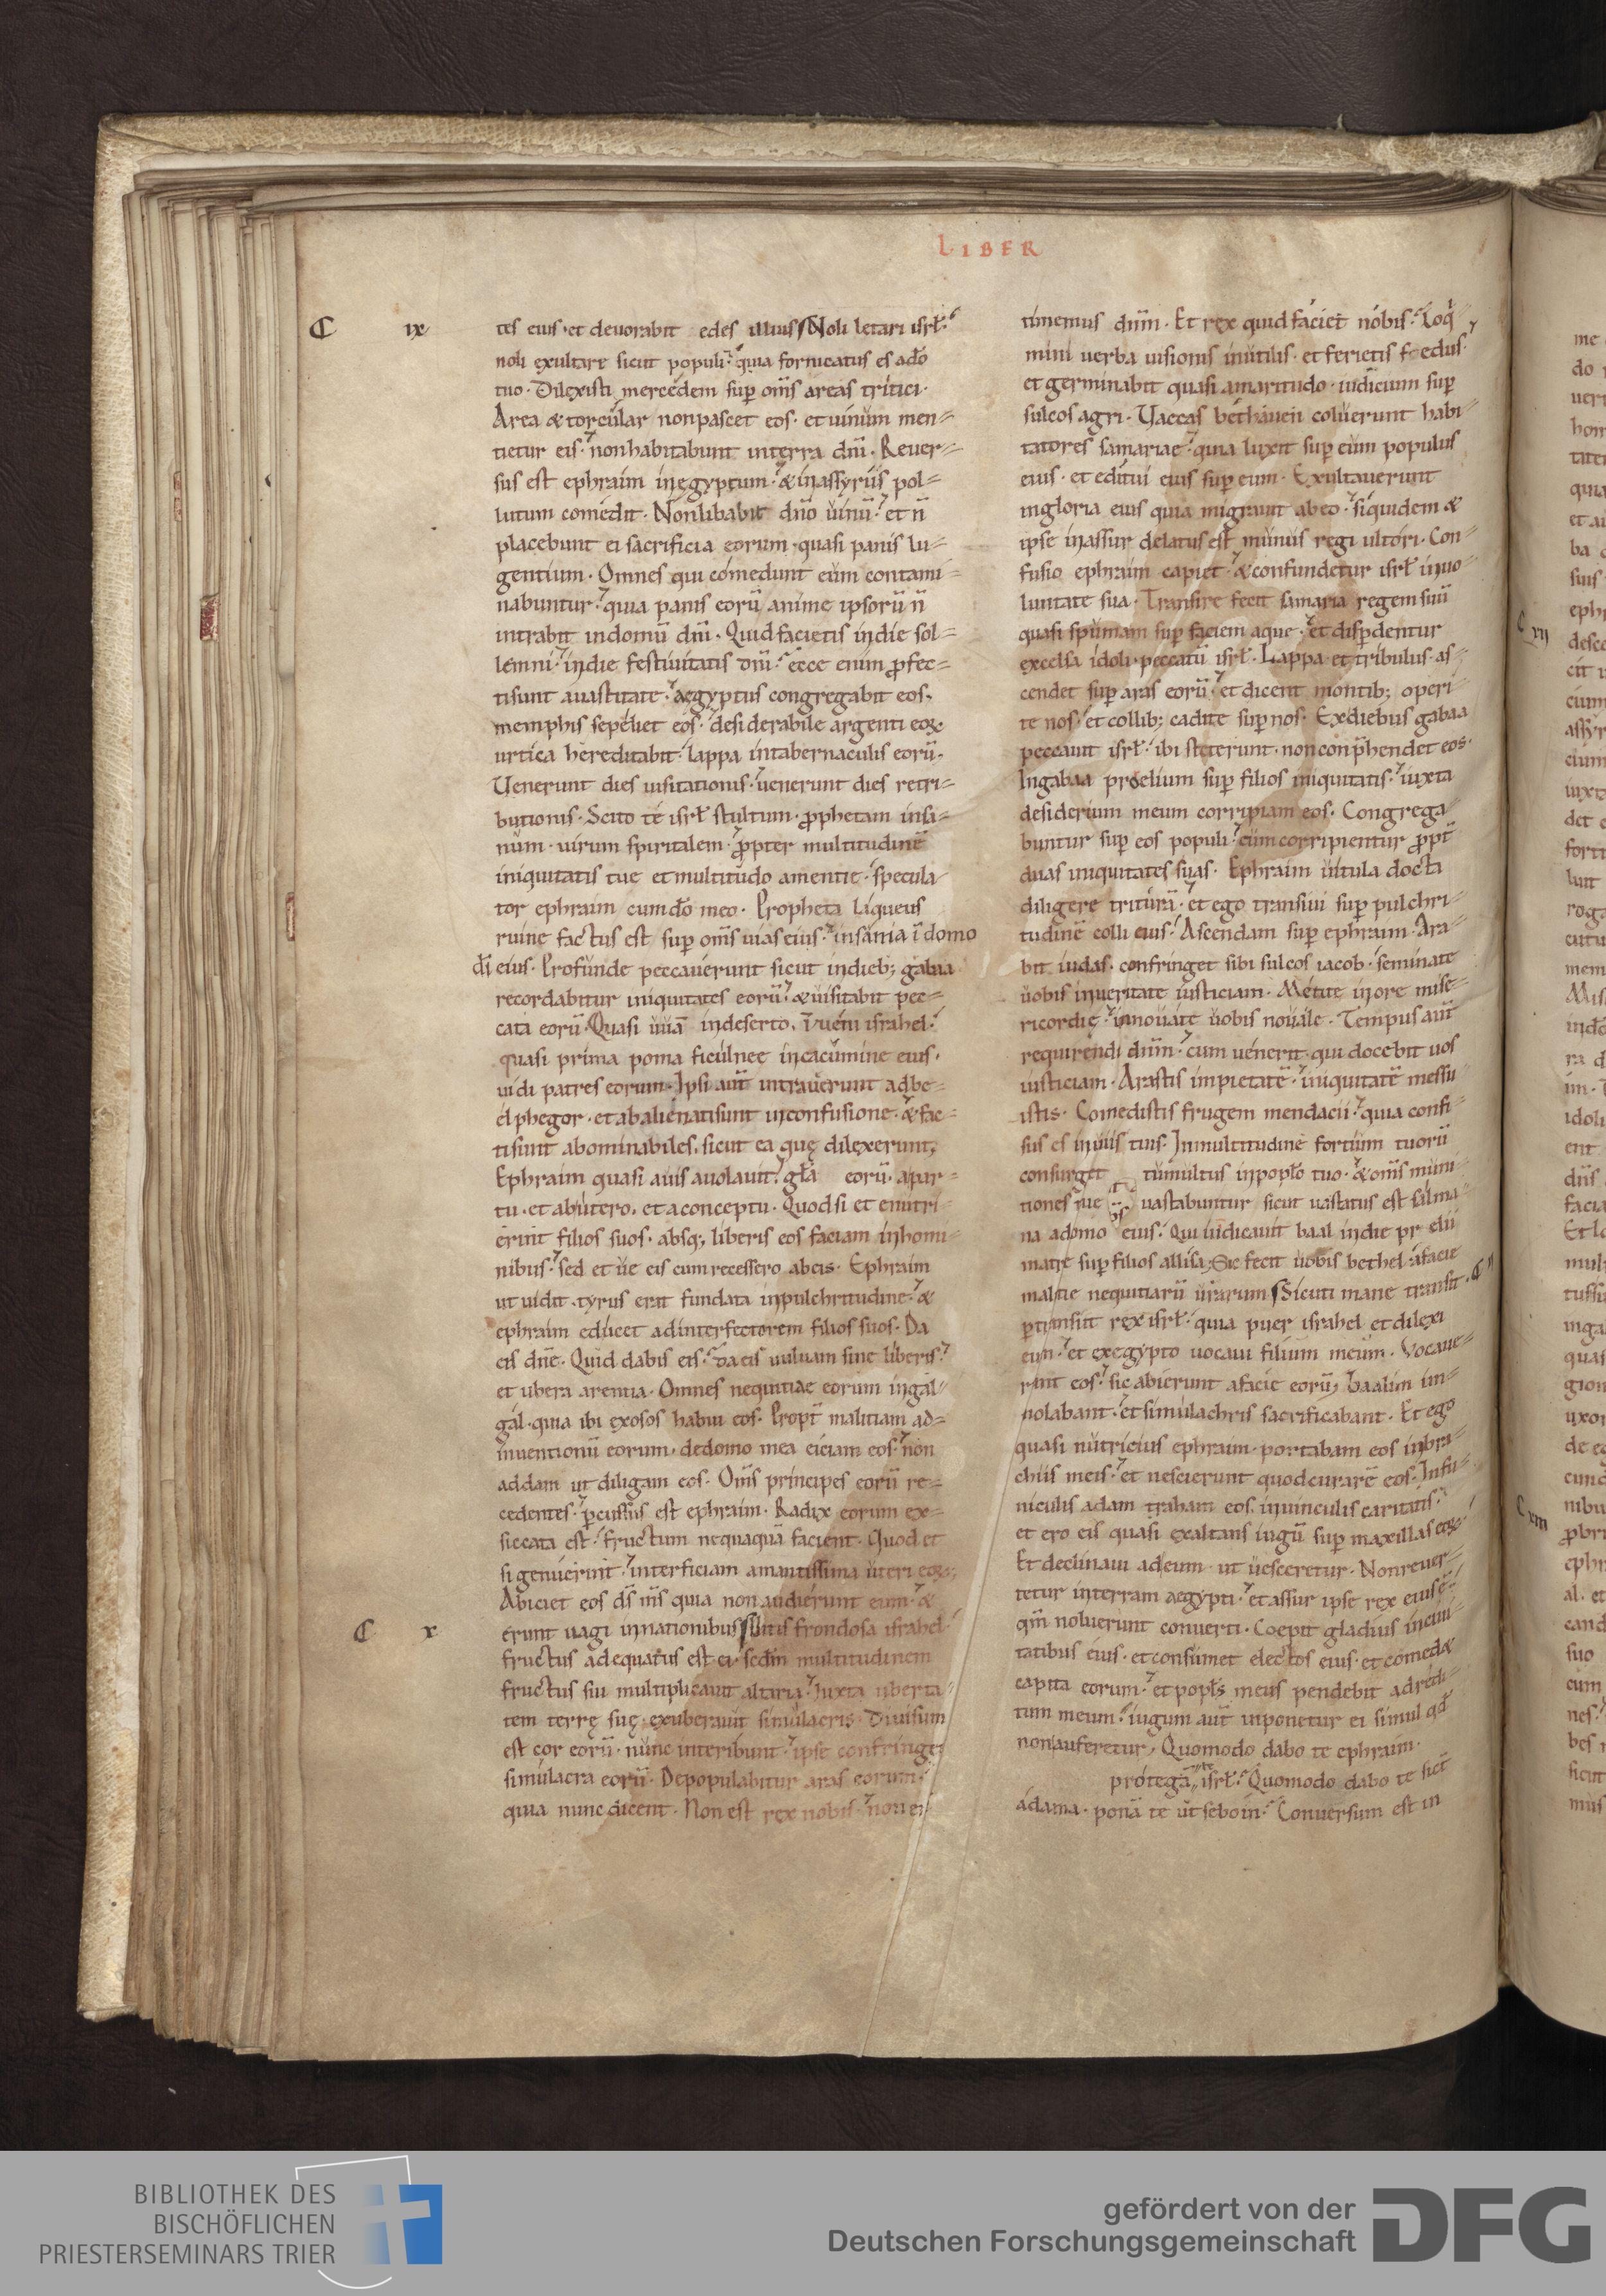 LIBER
C ix
tes eius · et deuorabit edes illius Noli letari isrł
noli exultare sicut populi · quia fornicatus es a dō
tuo · Dilexisti mercedem suꝑ om̄s areas tritici ·
Area & torcular non pascet eos · et uinum men=
tietur eis · non habitabunt in terra dn̄i · Reuer=
sus est ephraim in egyptum · & in assyriis pol=
lutum comedit · Non libabit dn̄o uinū · et n̄
placebunt ei sacrificia eorum · quasi panis lu=
gentium · Omnes qui comedunt eum contami=
nabuntur · quia panis eorū anime ipsorū n̄
intrabit in domū dn̄i · Quid facietis in die sol=
lemni · in die festiuitatis dn̄i · ecce enim ꝓfec=
ti sunt a uastitate · aegyptus congregabit eos ·
memphis sepeliet eos · desiderabile argenti eoꝝ ·
urtica hereditabit · lappa in tabernaculis eorū ·
Uenerunt dies uisitationis · uenerunt dies retri=
butionis · Scito te isrł stultum · ꝓphetam insa=
num · uirum spiritalem · ꝓpter multitudinē
iniquitatis tue et multitudo amentie · specula
tor ephraim cum dō meo · Propheta laqueus
ruine factus est suꝑ om̄s uias eius · insania ī domo
dī eius · Profunde peccauerunt sicut in dieb; gabaa
recordabitur iniquitates eorū · & uisitabit pec=
cata eorū · Quasi uuā in deserto · inueni israhel ·
quasi prima poma ficulnee in cacumine eius ·
uidi patres eorum · Ipsi aūt intrauerunt ad be=
el phegor · et abalienati sunt in confusione · & fac=
ti sunt abominabiles · sicut ea quę dilexerunt ·
Ephraim quasi auis auolauit · głā eorū · a par=
tu · et ab utero · et a conceptu · Quod si et enutri=
erint filios suos · absq; liberis eos faciam in homi=
nibus · sed et ue eis cum recessero ab eis · Ephraim
ut uidit · tyrus erat fundata in pulchritudine · &
ephraim educet ad interfectorem filios suos · Da
eis dn̄e · Quid dabis eis · Da eis uuluam sine liberis ·
et ubera arentia · Omnes nequitiae eorum in gal=
gal · quia ibi exosos habui eos · Propt̄ malitiam ad=
inuentionū eorum · de domo mea eiciam eos · non
addam ut diligam eos · Om̄s principes eorū re=
cedentes · ꝑcussus est ephraim · Radix eorum ex=
siccata est · fructum nequaquā facient · Quod et
si genuerint · interficiam amantissima uteri eoꝝ ·
Abiciet eos dš mš quia non audierunt eum · &
C x
erunt uagi in nationibus Uitis frondosa israhel
fructus adequatus est ei · sedm̄ multitudinem
fructus sui multiplicauit altaria · Iuxta uberta=
tem terrę suę · exuberauit simulacris · Diuisum
est cor eorū · nunc interibunt · ipse confringet
simulacra eorū · Depopulabitur aras eorum ·
quia nunc dicent · Non est rex nobis · non eni
timemus dn̄m · Et rex quid faciet nobis · Loq̄
mini uerba uisionis inutilis · et ferietis foedus ·
et germinabit quasi amaritudo · iudicium suꝑ
sulcos agri · Uaccas bethauen coluerunt habi=
tatores samariae · quia luxit suꝑ eum populus
eius · et editui eius suꝑ eum · Exultauerunt
in gloria eius quia migrauit ab eo · siquidem &
ipse in assur delatus est munus regi ultori · Con=
fusio ephraim capiet · & confundetur isrł in uo=
luntate sua · Transire fecit samaria regem suū
quasi spumam suꝑ faciem aque · et disꝑdentur
excelsa idoli · peccatū isrł · Lappa et tribulus as=
cendet suꝑ aras eorū · et dicent montib; operi=
te nos · et collib; cadite suꝑ nos · Ex diebus gabaa
peccauit isrł · ibi steterunt · non conp̄hendet eos ·
In gabaa proelium suꝑ filios iniquitatis · iuxta
desiderium meum corripiam eos · Congrega=
buntur suꝑ eos populi · cum corripientur ꝓpt̄
duas iniquitates suas · Ephraim uitula docta
diligere triturā · et ego transiui suꝑ pulchri=
tudinē colli eius · Ascendam suꝑ ephraim · Ara=
bit iudas · confringet sibi sulcos iacob · seminate
uobis in ueritate iusticiam · Metite in ore mise=
ricordię · innouate uobis nouale · Tempus aūt
requirendi dn̄m · cum uenerit · qui docebit uos
iusticiam · Arastis impietatē · iniquitatē messu=
istis · Comedistis frugem mendacii · quia confi=
sus es in uiis tuis · In multitudine fortium tuorū
consurget tumultus in popło tuo · & om̄s muni=
tiones tue uastabuntur sicut uastatus est salma=
na a domo eius · Qui iudicauit baal in die prelii
matre suꝑ filios allisa · Sic fecit uobis bethel · a facie
malitie nequitiarū urarum Sicuti mane transit ·
ꝑtransiit rex isrł · quia puer israhel et dilexi
eum · et ex egypto uocaui filium meum · Vocaue=
runt eos · sic abierunt a facie eorū · baalim im=
molabant · et simulachris sacrificabant · Et ego
quasi nutricius ephraim · portabam eos in bra=
chiis meis · et nescierunt quod curarē eos · In fu=
niculis adam traham eos · in uinculis caritatis ·
et ero eis quasi exaltans iugū suꝑ maxillas eoꝝ ·
Et declinaui ad eum · ut uesceretur · Non reuer=
tetur in terram aegypti · et assur ipse rex eius ·
qm̄ noluerunt conuerti · Coepit gladius in ciui=
tatibus eius · et consumet electos eius · et comed&
capita eorum · et popłs meus pendebit ad redi=
tum meum · iugum aūt inponetur ei simul qđ
non auferetur · Quomodo dabo te ephraim ·
protegā te isrł · Quomodo dabo te sicut
adama · ponā te ut seboin · Conuersum est in
C xii
C xiii
BIBLIOTHEK DES
BISCHÖFLICHEN
PRIESTERSEMINARS TRIER
gefördert von der
Deutschen Forschungsgemeinschaft
DFG